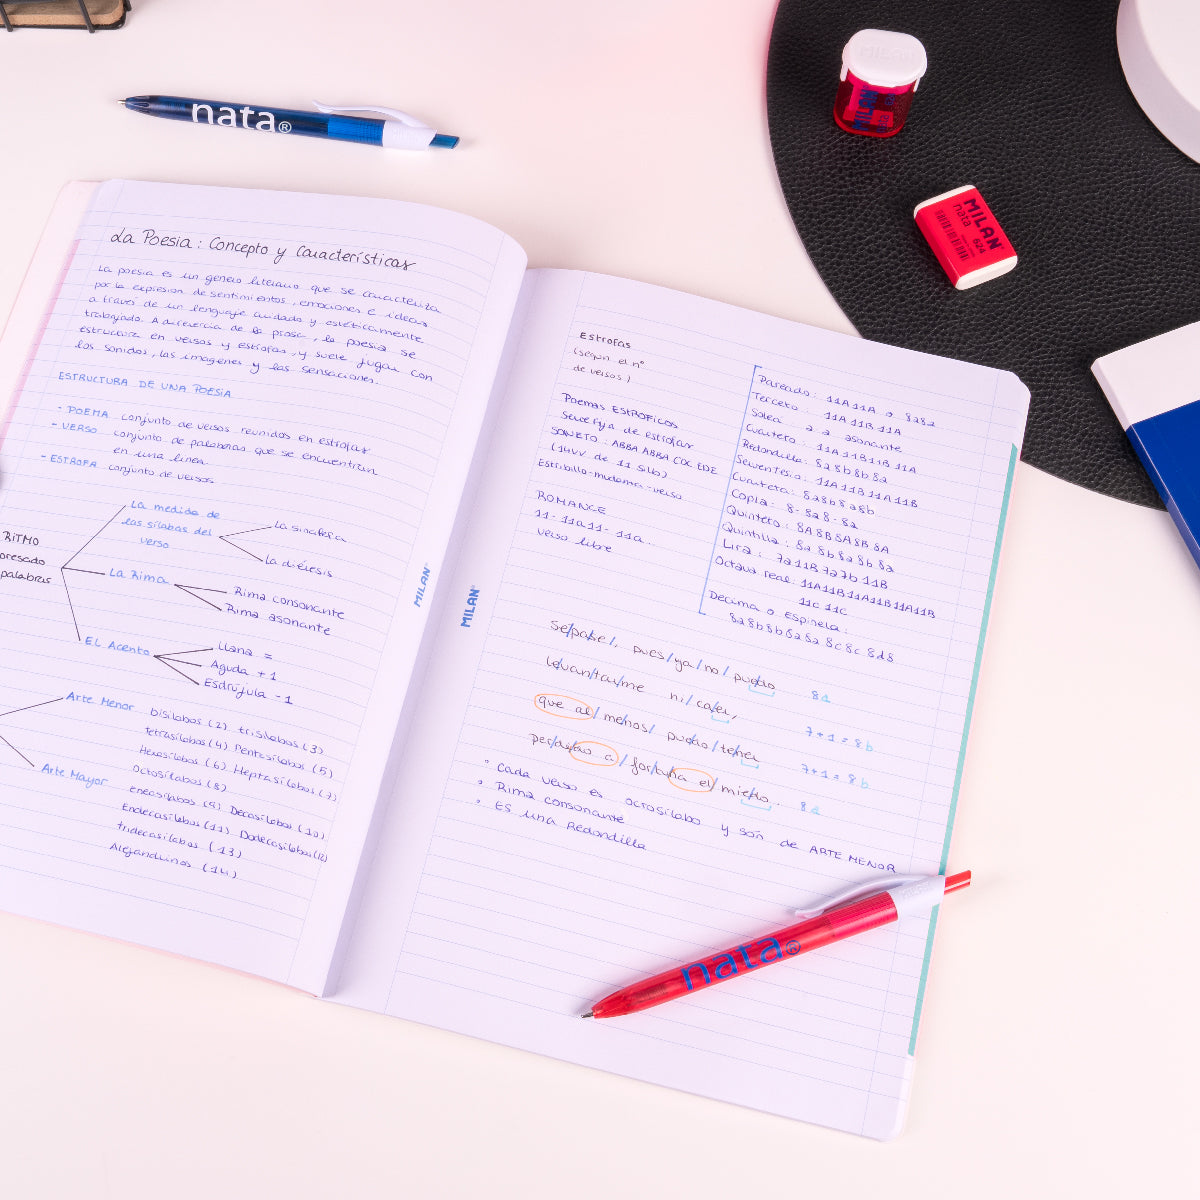 nata®
MILAN
MILAN
nata
MILAN
nata
624
La Poesia: Concepto y Características
La poesía es un género literario que se caracteriza
por la expresión de sentimientos, emociones e ideas
a través de un lenguaje cuidado y estéticamente
trabajado. A diferencia de la prosa, la poesía se
estructura en versos y estrofas, y suele jugar con
los sonidos, las imágenes y las sensaciones.
ESTRUCTURA DE UNA POESIA
- POEMA conjunto de versos reunidos en estrofas
- VERSO conjunto de palabras que se encuentran
en una línea
- ESTROFA conjunto de versos
RITMO
palabras
La medida de
las sílabas del
verso
La sinalefa
La diéresis
La Rima
Rima consonante
Rima asonante
EL Acento
Llana =
Aguda + 1
Esdrújula - 1
Arte Menor
bisílabos (2) trisílabos (3)
tetrasílabos (4) Pentasílabos (5)
Hexasílabos (6) Heptasílabos (7)
Octosílabos (8)
Arte Mayor
eneasílabos (9) Decasílabos (10)
Endecasílabos (11) Dodecasílabos (12)
tridecasílabos (13)
Alejandrinos (14)
MILAN
MILAN
Estrofas
(según el nº
de versos)
Poemas ESTROFICOS
de estrofas
SONETO: ABBA ABBA CDC EDE
(14VV de 11 silb)
Estribillo-mudanza-verso
ROMANCE
11- 11a 11- 11a..
verso libre
Pareado: 11A 11A o 8a8a
Terceto: 11A 11B 11A
Solea a a asonante
Cuarteto: 11A 11B 11B 11A
Redondilla: 8a 8b 8b 8a
Serventesio: 11A 11B 11A 11B
Cuarteta: 8a 8b 8a 8b
Copla: 8- 8a 8- 8a
Quinteto: 8A 8B 8A 8B 8A
Quintilla: 8a 8b 8a 8b 8a
Lira: 7a 11B 7a 7b 11B
Octava real: 11A 11B 11A 11B 11A 11B
11C 11C
Decima o Espinela:
8a 8b 8b 8a 8a 8c 8c 8d 8
Se/pa/se/, pues/ya/no/puedo 8a
le/van/tar/me ni/caer, 7+1=8b
que al/menos/puedo/tener 7+1=8b
a/for/tuna el/miedo. 8a
° Cada verso es octosílabo y son de ARTE MENOR
° Rima consonante
° ES una Redondilla
nata®